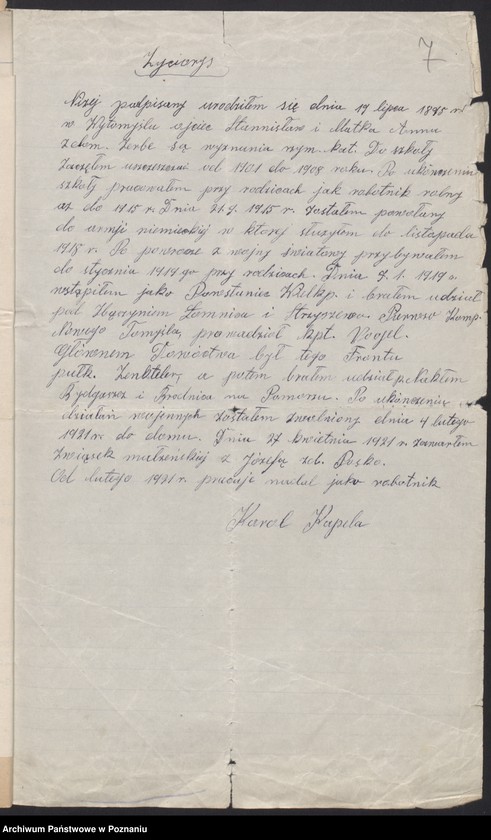 7
Życiorys
Niżej podpisany urodziłem się dnia 19 lipca 1895 r.
w Wytomyślu ojciec Stannisław i Matka Anna
zdom. Zerbe są wyznania rzym. kat. Do szkoły
zacząłem uczęszczać od 1901 do 1908 roku. Po ukończeniu
szkoły pracowałem przy rodzicach jak robotnik rolny
aż do 1915 r. Dnia 21.9. 1915 r. zostałem powołany
do armji niemieckiej w której służyłem do listopada
1918 r. Po powrocie z wojny światowej przybywałem
do stycznia 1919 go przy rodzicach. Dnia 9. 1. 1919 r.
wstąpiłem jako Powstaniec Wielkp. i brałem udział
pod Zbąszyniem Łomnica i Strzyżewo. Pierwszo Komp.
Nowego Tomyśla, prowadział Kpt. Vogel.
Głównem Dowództwa był tego Frontu
pułk. Zenkteler, a potem brałem udział pod
Bydgoszcz i Brodnica na Pomorzu. Po ukończeniu
działań wojennych zostałem zwolniony dnia 4 lutego
1921 r. do domu. Dnia 27 kwietnia 1921 r. zawarłem
Związek małżeńskiej z Józefą zd. Pośko.
Od lutego 1921 r. pracuję nadal jako robotnik
Karol Kapela
Archiwum Państwowe w Poznaniu